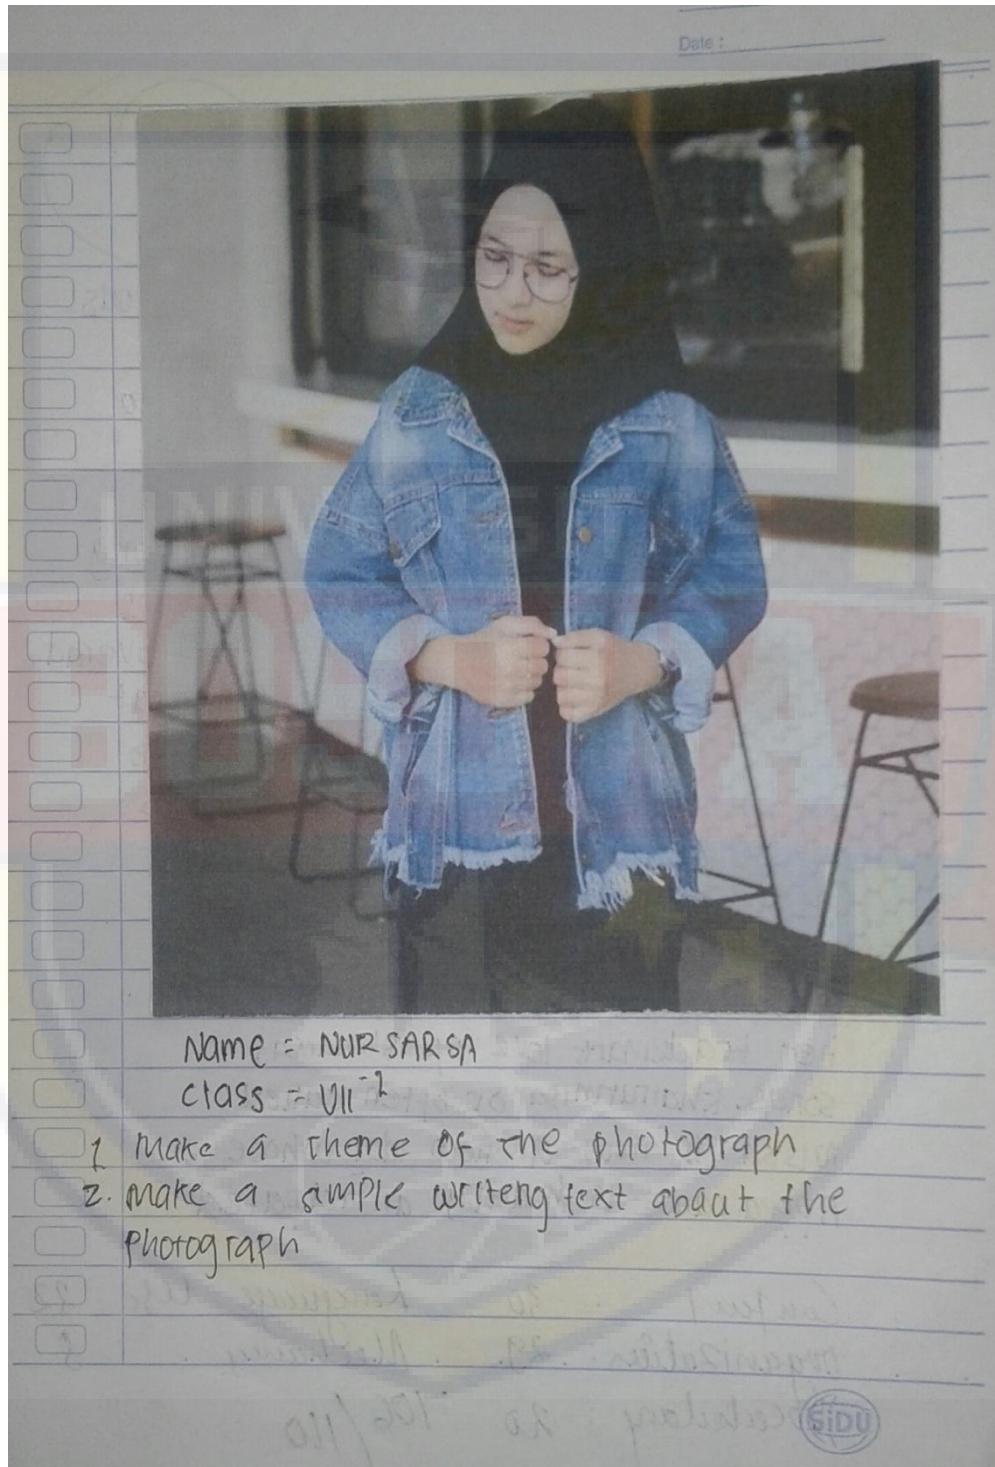 Date :
UNIVERSITAS
BOSOWA
Name = NUR SARSA
Class = VII-2
1 Make a theme of the photograph
2. Make a simple writeng text abaut the
photograph
SiDU